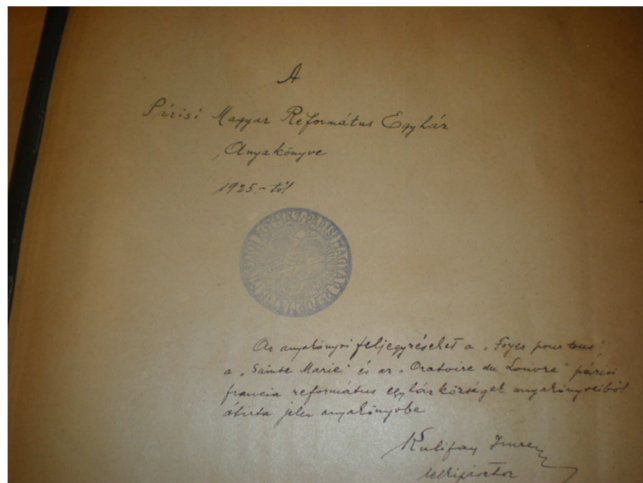 A
Párisi Magyar Református Egyház
Anyakönyve
1925.-től
Az anyakönyvi feljegyzéseket a „Foyer pour tous”,
a „Sainte Marie” és az „Oratoire du Louvre” párisi
francia református egyházközségek anyakönyveiből
átirta jelen anyakönyvbe
Imre
lelkipásztor